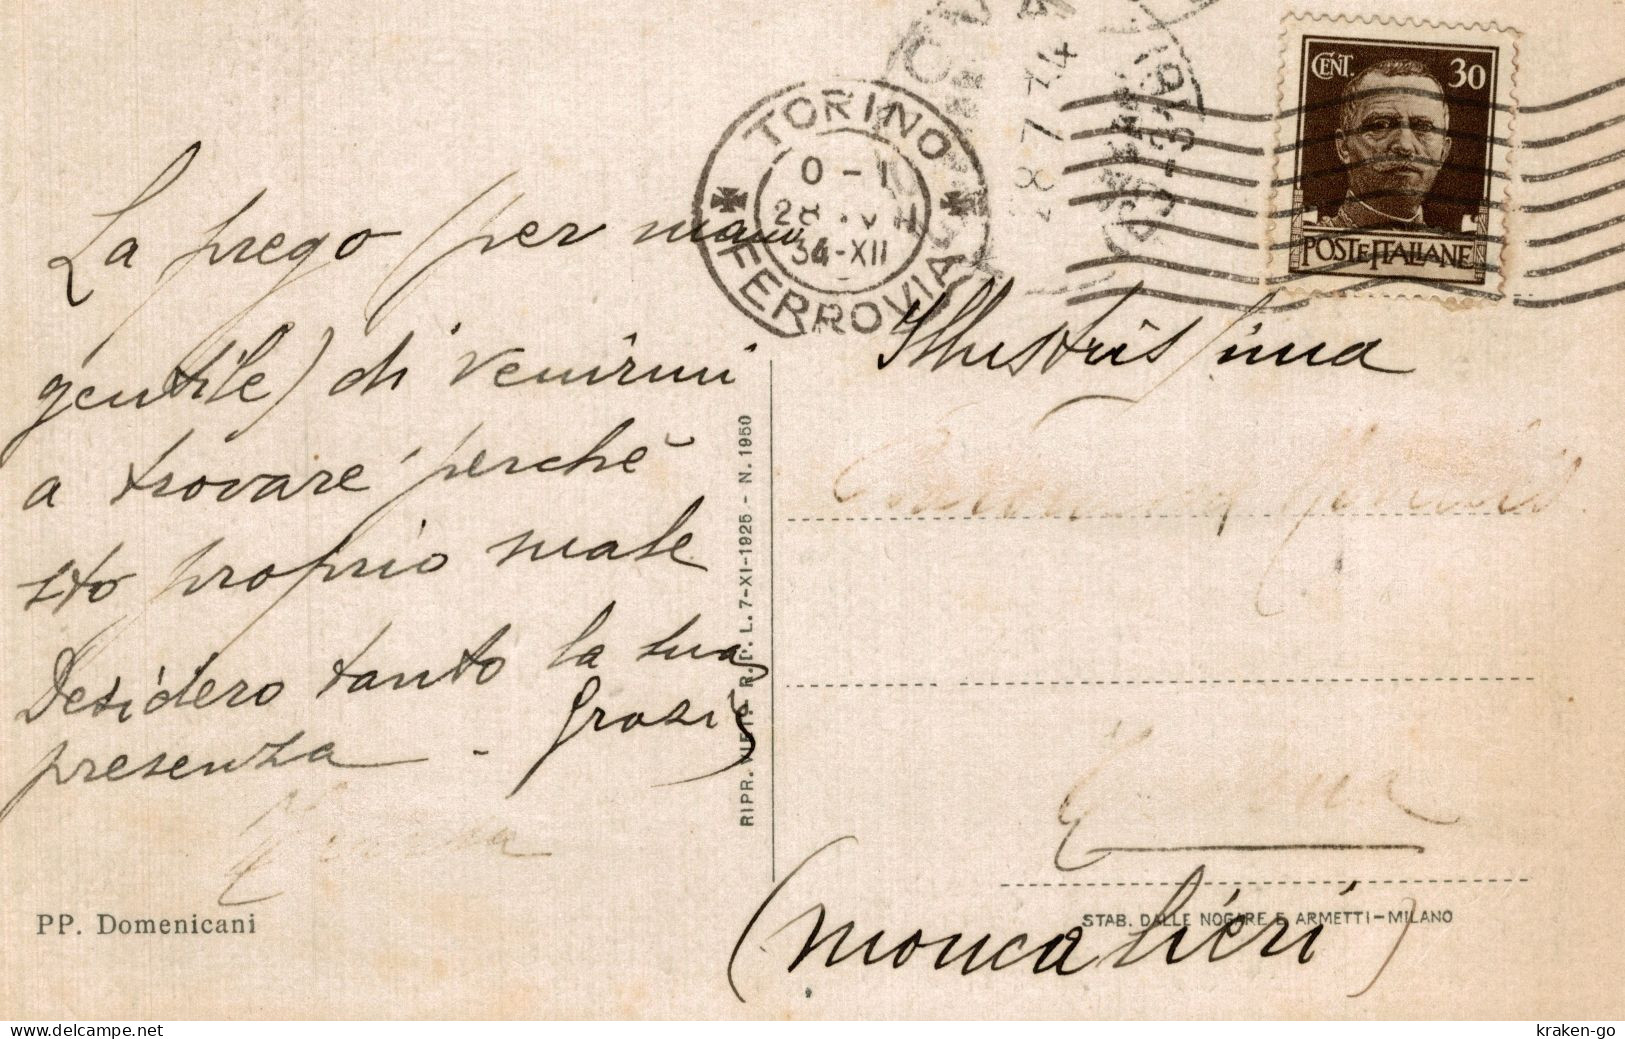 La prego (per
gentile) di venirmi
a trovare perchè
sto proprio male
Desidero tanto la sua
presenza - Grazie
PP. Domenicani
RIPR. VIET. R. D. L. 7-XI-1925 - N. 1950
TORINO
0 - 1
34-XII
FERROVIA
CENT. 30
POSTE ITALIANE
Illustrissima
STAB. DALLE NOGARE E ARMETTI-MILANO
(Moncalieri)
kraken-go
www.delcampe.net